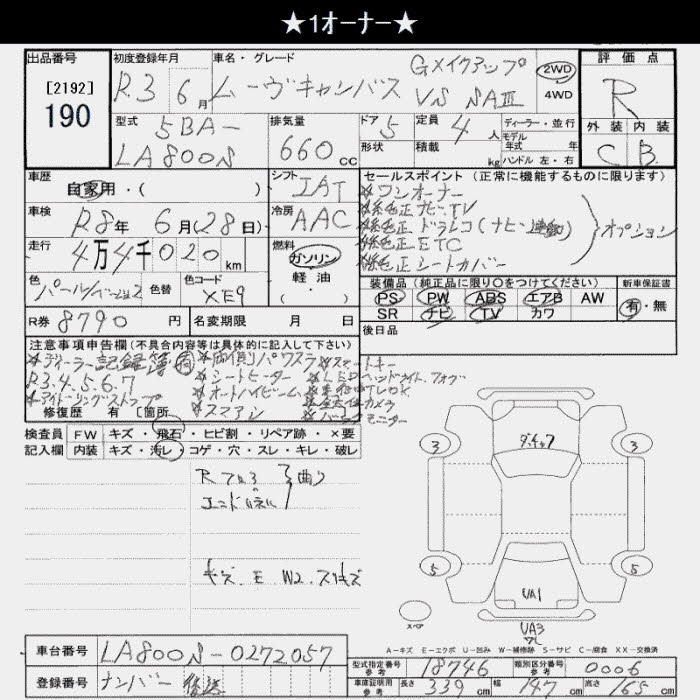 ★1オーナー★
出品番号
[2192]
190
初度登録年月
R.3 6月
車名・グレード
ムーヴキャンバス
Gメイクアップ
VS SAⅢ
2WD
4WD
評価点
R
外装 内装
C B
型式
5BA-
LA800S
排気量
660cc
ドア
5
形状
定員
4人
積載
kg
ディーラー・並行
モデル
年式 年
ハンドル 左・右
車歴
自家用・( )
シフト
IAT
車検
R8年 6月(28日)
冷房
AAC
走行
4万4千020km
燃料
ガソリン
軽油
・( )
色
色替
色コード
XE9
R券 8790円
名変期限 月 日
セールスポイント (正常に機能するものに限ります)
*ワンオーナー
*純正ナビ・TV
*純正ドラレコ(ナビ連動)
*純正ETC
*純正シートカバー
オプション
装備品(純正品に限り○をつけてください)
PS PW ABS エアB AW
SR ナビ TV カワ
新車保証書
有・無
後日品
注意事項申告欄(不具合内容等は具体的に記入して下さい)
*ディーラー記録簿
R3.4.5.6.7
*アイドリングストップ
*両側パワスラ
*シートヒーター
*オートハイビーム
*スマアシ
*スマートキー
*LEDヘッドライト、フォグ
*バックモニター
修復歴 有 [箇所
検査員
記入欄
FW キズ・飛石・ヒビ割・リペア跡・×要
内装 キズ・汚レ・コゲ・穴・スレ・キレ・破レ
曲り
エンドパネル
キズ、E、W2、スリキズ
3 3
5 5
ダッチャク
UA1
UA3
スペア
A-キズ E-エクボ U-凹み W-補修跡 S-サビ C-腐食 XX-交換済
車台番号 LA800S-0272057
登録番号 ナンバー後送
型式指定番号
参考
18746
類別区分番号
参考
0006
車庫証明用
参考
長さ 339cm 幅 147cm 高さ 165cm